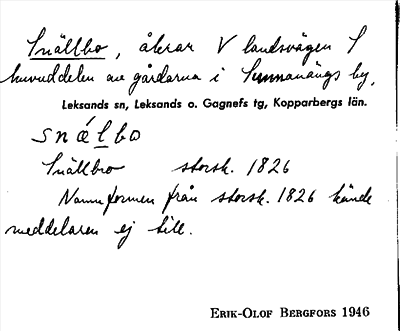 Snällbo, åkrar V landsvägen S
huvuddelen av gårdarna i Sunnanängs by,
Leksands sn, Leksands o. Gagnefs tg, Kopparbergs län.
snǽlbo
Snällbro storsk. 1826
Namnformen från storsk. 1826 kände
meddelaren ej till.
ERIK-OLOF BERGFORS 1946